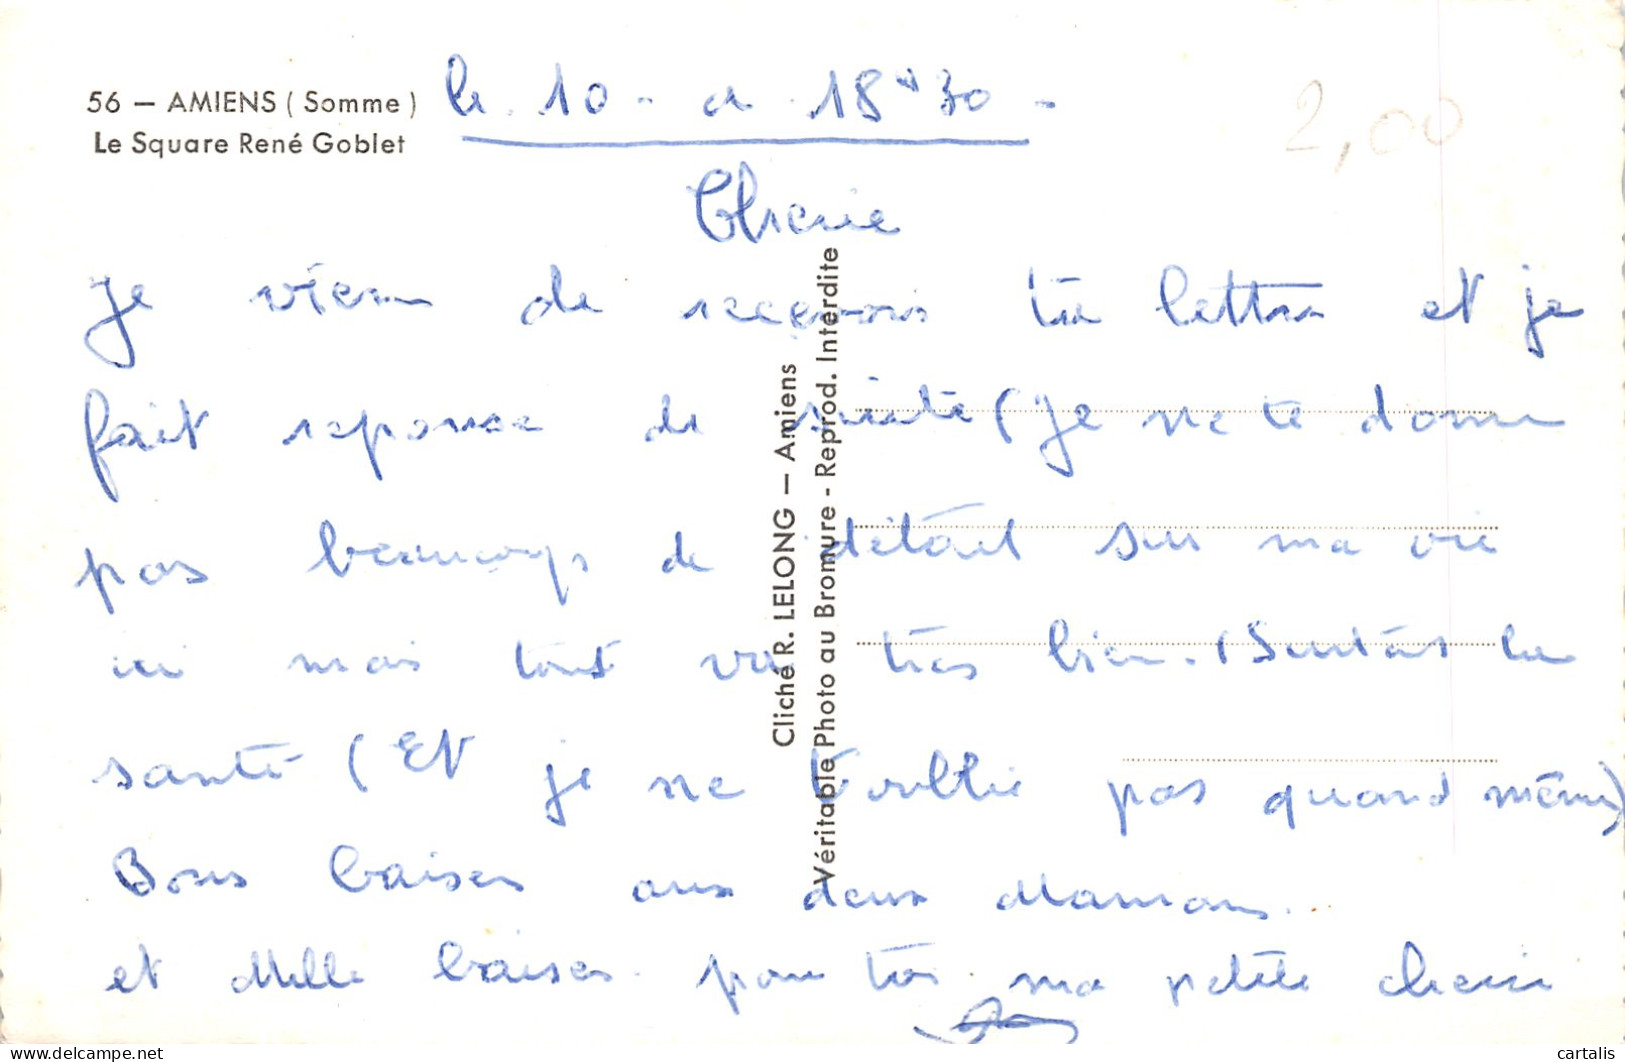 56 — AMIENS ( Somme )
Le Square René Goblet
le 10 - a 18 h 30 -
2,00
Cherie
Je viens de recevoir ta lettre et je
fait reponse de suite (Je ne te donne
pas beaucoup de détail sur ma vie
ici mais tout va très bien. (Surtout la
santé ( Et je ne t'oublie pas quand même)
Bons baisers aux deux Mamans.
et Mille baisers pour toi ma petite cherie
Cliché R. LELONG — Amiens
Véritable Photo au Bromure - Reprod. Interdite
www.delcampe.net
cartalis